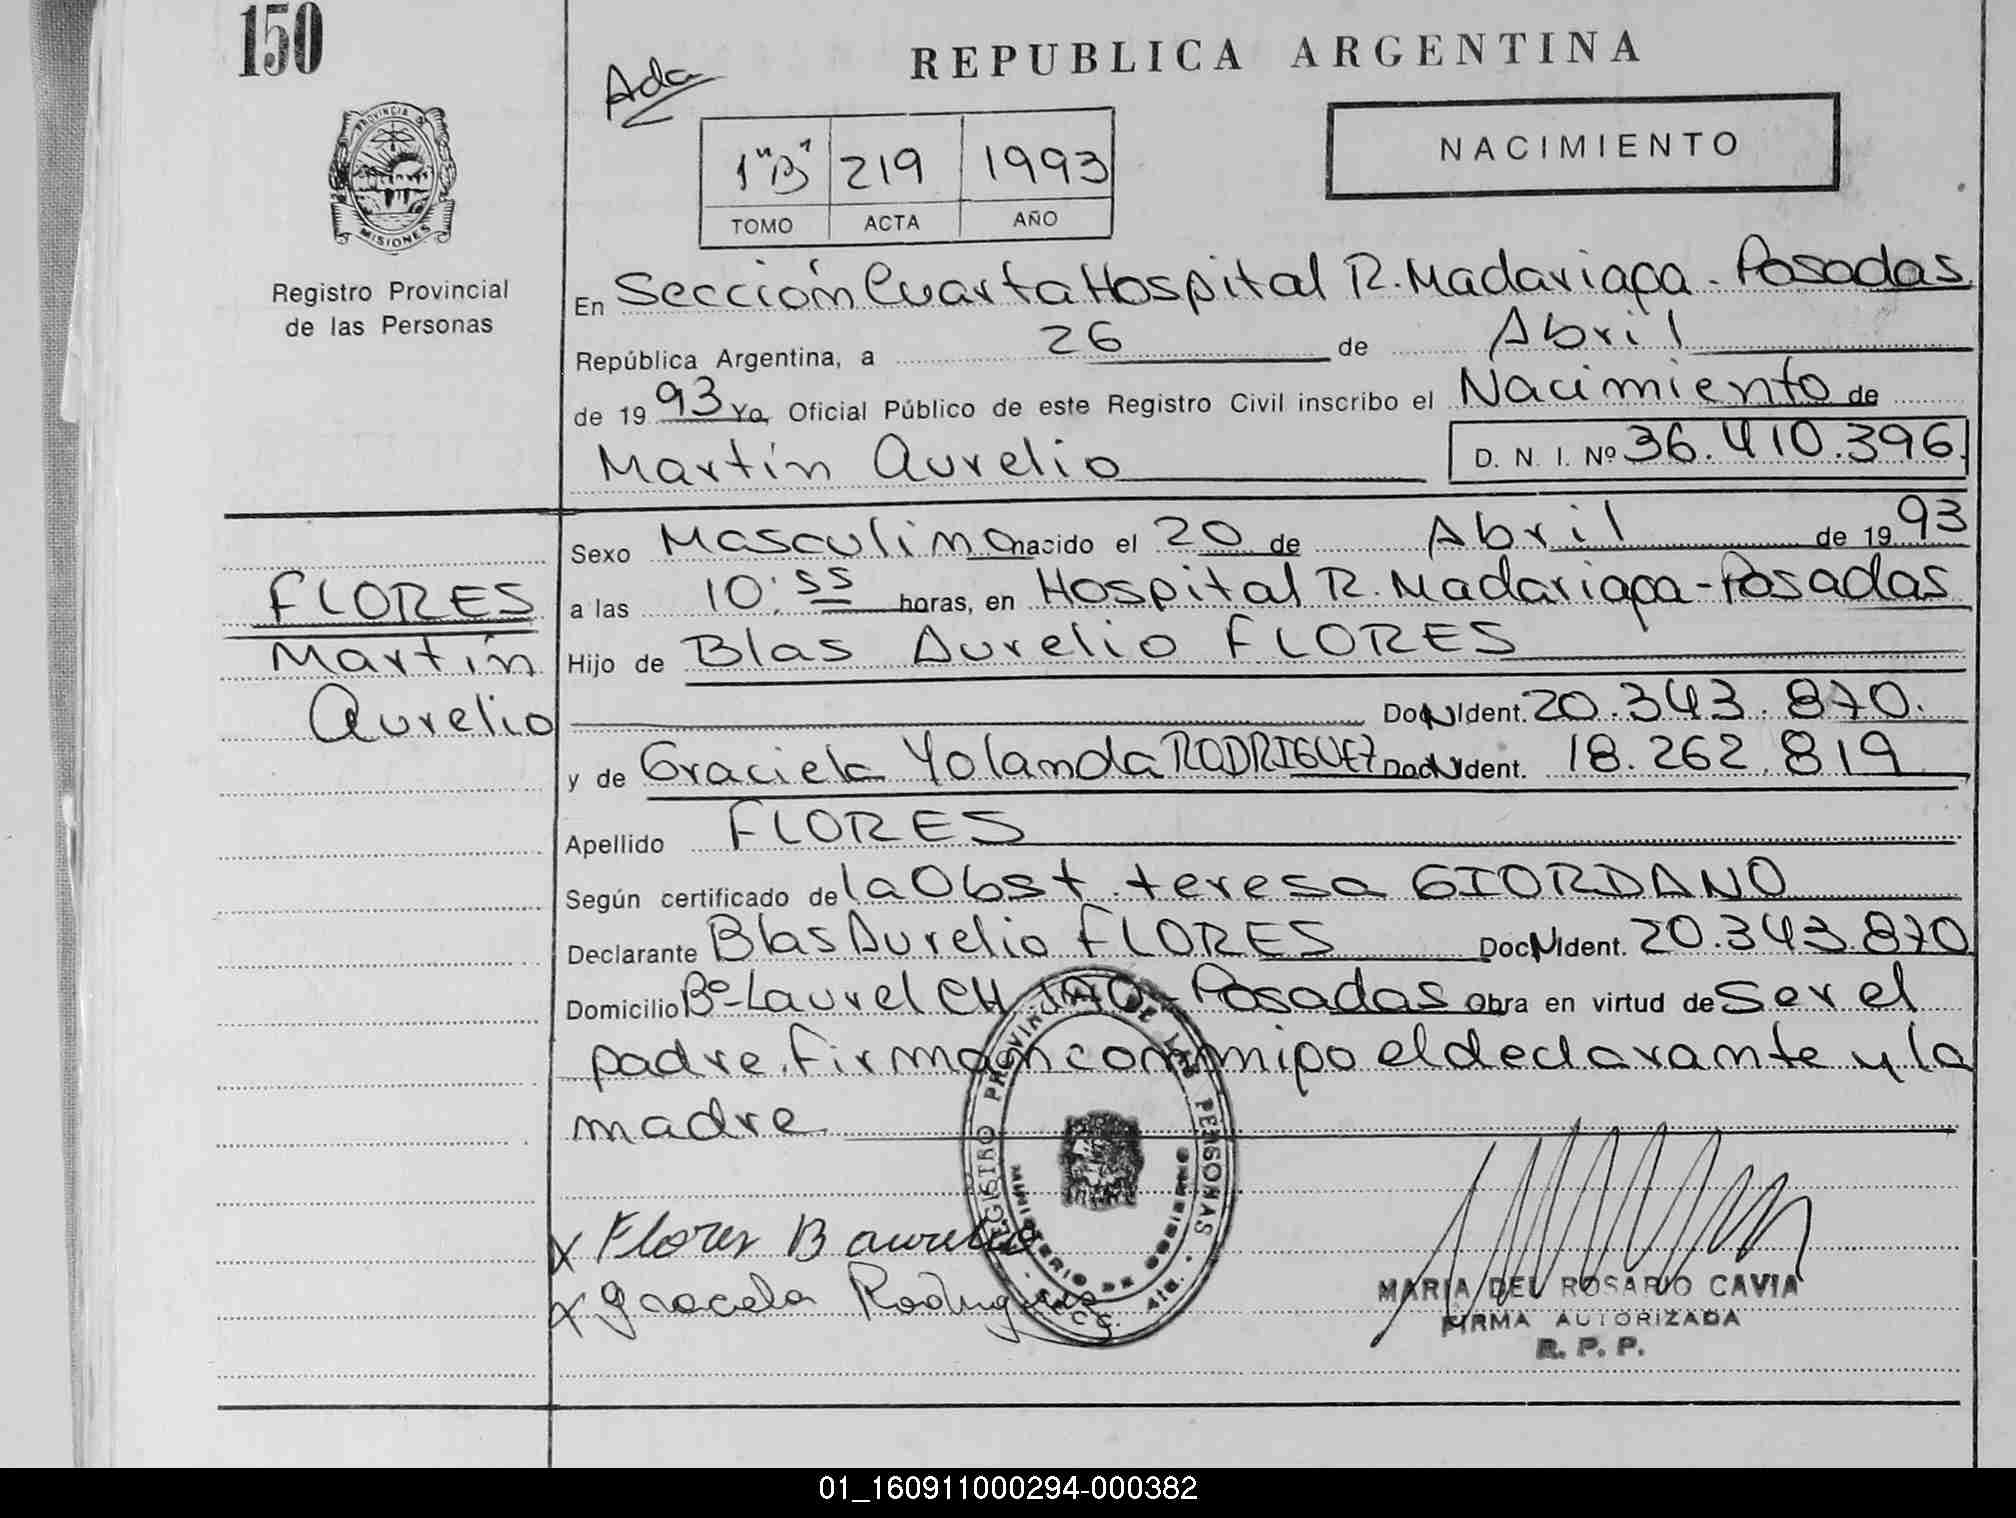 150
REPUBLICA ARGENTINA
Ada
NACIMIENTO
1 "B" 219 1993
TOMO ACTA AÑO
PROVINCIA DE
MISIONES
Registro Provincial
de las Personas
En Sección Cuarta Hospital R. Madariaga - Posadas
República Argentina, a 26 de Abril
de 1993 Yo, Oficial Público de este Registro Civil inscribo el Nacimiento de
Martín Aurelio D. N. I. Nº 36.410.396
Sexo Masculino nacido el 20 de Abril de 1993
FLORES
a las 10:55 horas, en Hospital R. Madariaga - Posadas
Martín
Hijo de Blas Aurelio FLORES
Aurelio
DocNIdent. 20.343.870.
y de Graciela Yolanda RODRIGUEZ DocNIdent. 18.262.819
Apellido FLORES
Según certificado de la Obst. teresa GIORDANO
Declarante Blas Aurelio FLORES DocNIdent. 20.343.870
Domicilio Bº-Laurel CH - Posadas Obra en virtud de Ser el
padre. firman conmigo el declarante y la
madre
REGISTRO PROVINCIAL DE LAS PERSONAS
MINISTERIO DE GOBIERNO
x Flores B aurelio
x Graciela Rodriguez
MARIA DEL ROSARIO CAVIA
FIRMA AUTORIZADA
R. P. P.
01_160911000294-000382